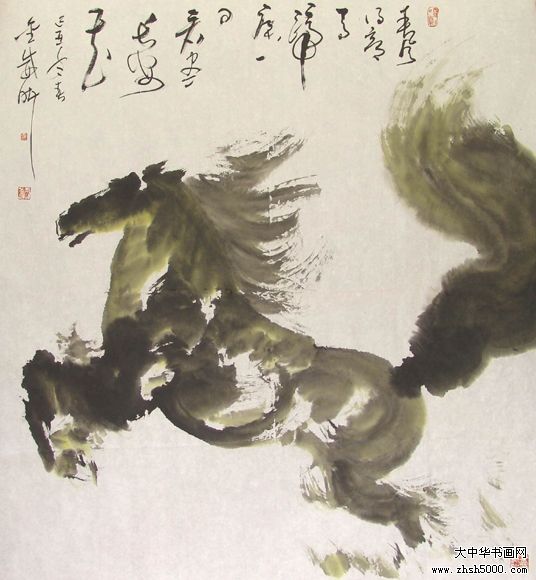 春风
得意
马
蹄
疾一
日
看尽
长安
花
己丑春
大中华书画网
www.zhsh5000.com